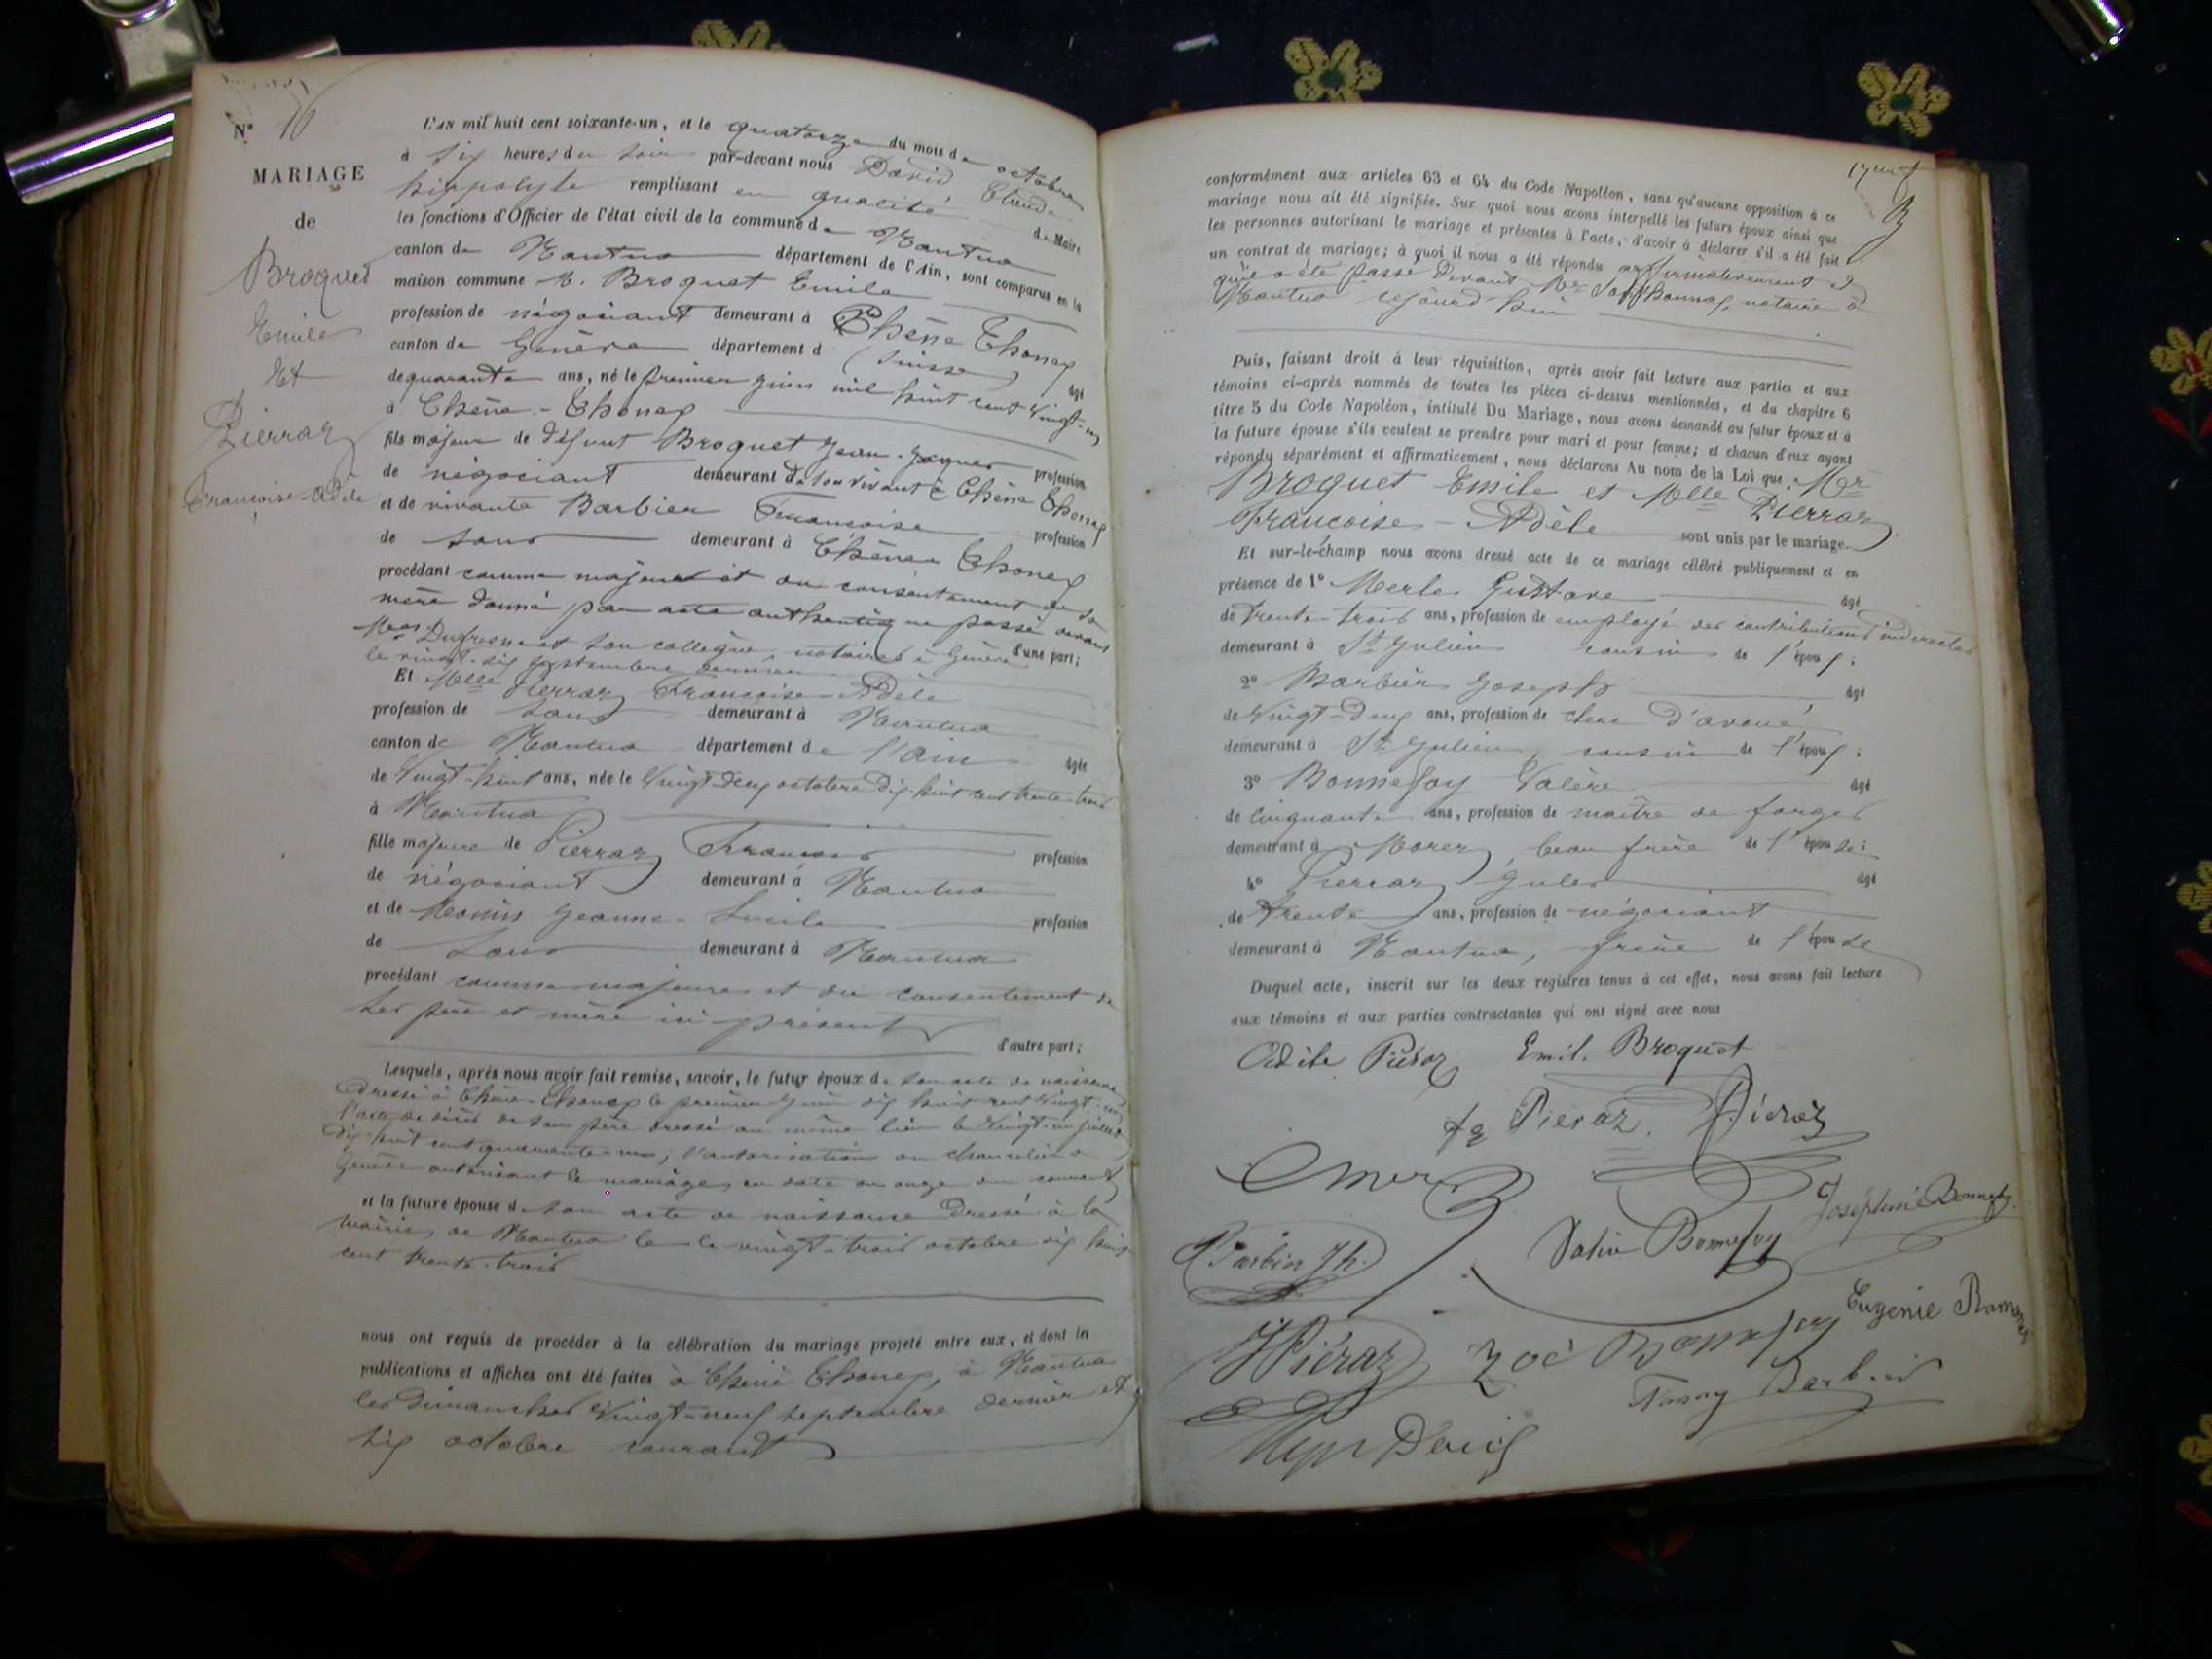 N° 16
MARIAGE
de
Broquet
Emile
Et
Pierraz
Françoise-Adèle
L'AN mil huit cent soixante-un, et le quatorze du mois de octobre
à six heures du soir par-devant nous David Claude
hippolyte remplissant en qualité de Maire
les fonctions d'Officier de l'état civil de la commune de Nantua
canton de Nantua département de l'Ain, sont comparus en la
maison commune M. Broquet Emile
profession de négociant demeurant à Chêne Thonex
canton de Genève département d (Suisse) âgé
de quarante ans, né le premier juin mil huit cent vingt-un
à Chêne-Thonex
fils majeur de défunt Broquet Jean-Jaques profession
de négociant demeurant de son vivant à Chêne Thonex
et de vivante Barbier Françoise profession
de sans demeurant à Chêne Thonex
procédant comme majeur et du consentement de sa
mère donné par acte authentique passé devant
Mes Dufresne et son collègue notaires à Genève d'une part;
le vingt-six septembre dernier
Et Melle Pierraz Françoise-Adèle
profession de sans demeurant à Nantua
canton de Nantua département de l'ain âgée
de vingt-huit ans, née le vingt-deux octobre dix-huit cent trente-trois
à Nantua
fille majeure de Pierraz François profession
de négociant demeurant à Nantua
et de Jeanne-Lucile profession
de sans demeurant à Nantua
procédant comme majeure et du consentement de
ses père et mère ici présents
d'autre part;
Lesquels, après nous avoir fait remise, savoir, le futur époux de son acte de naissance
dressé à Chêne-Thonex le premier juin dix huit cent vingt-un
l'acte de décès de son père dressé au même lieu le vingt-un juillet
dix-huit cent quarante-un; l'autorisation
Genève autorisant le mariage, en date du onze du courant
et la future épouse d. son acte de naissance dressé à la
mairie de Nantua le le vingt-trois octobre dix huit
cent trente-trois
nous ont requis de procéder à la célébration du mariage projeté entre eux, et dont les
publications et affiches ont été faites à Chêne Thonex, à Nantua
les dimanches vingt-neuf septembre dernier et
six octobre courant
conformément aux articles 63 et 64 du Code Napoléon, sans qu'aucune opposition à ce
mariage nous ait été signifiée. Sur quoi nous avons interpellé les futurs époux ainsi que
les personnes autorisant le mariage et présentes à l'acte, d'avoir à déclarer s'il a été fait
un contrat de mariage; à quoi il nous a été répondu affirmativement et
qu'il a été passé devant Me notaire à
Nantua cejourd'hui
Puis, faisant droit à leur réquisition, après avoir fait lecture aux parties et aux
témoins ci-après nommés de toutes les pièces ci-dessus mentionnées, et du chapitre 6
titre 5 du Code Napoléon, intitulé Du Mariage, nous avons demandé au futur époux et à
la future épouse s'ils veulent se prendre pour mari et pour femme; et chacun d'eux ayant
répondu séparément et affirmativement, nous déclarons Au nom de la Loi que Mr
Broquet Emile et Melle Pierraz
Françoise-Adèle sont unis par le mariage.
Et sur-le-champ nous avons dressé acte de ce mariage célébré publiquement et en
présence de 1° Merle Gustave âgé
de trente-trois ans, profession de employé des contributions indirectes
demeurant à St Julien cousin de l'époux;
2° Barbier Joseph âgé
de vingt-deux ans, profession de clerc d'avoué
demeurant à St Julien, cousin de l'époux;
3° Bonnefoy Valère âgé
de cinquante ans, profession de maître de forges
demeurant à Morez, beau frère de l'épouse;
4° Pierraz Jules âgé
de trente ans, profession de négociant
demeurant à Nantua, frère de l'épouse
Duquel acte, inscrit sur les deux registres tenus à cet effet, nous avons fait lecture
aux témoins et aux parties contractantes qui ont signé avec nous
Adèle Piéraz Emil. Broquet
fs Pieraz. Piéraz
Barbier Jh. Valère Bonnefoy Joséphine Bonnefoy
J Piéraz Zoé Bonnefoy Eugenie
Fanny Barbier
Hypp David